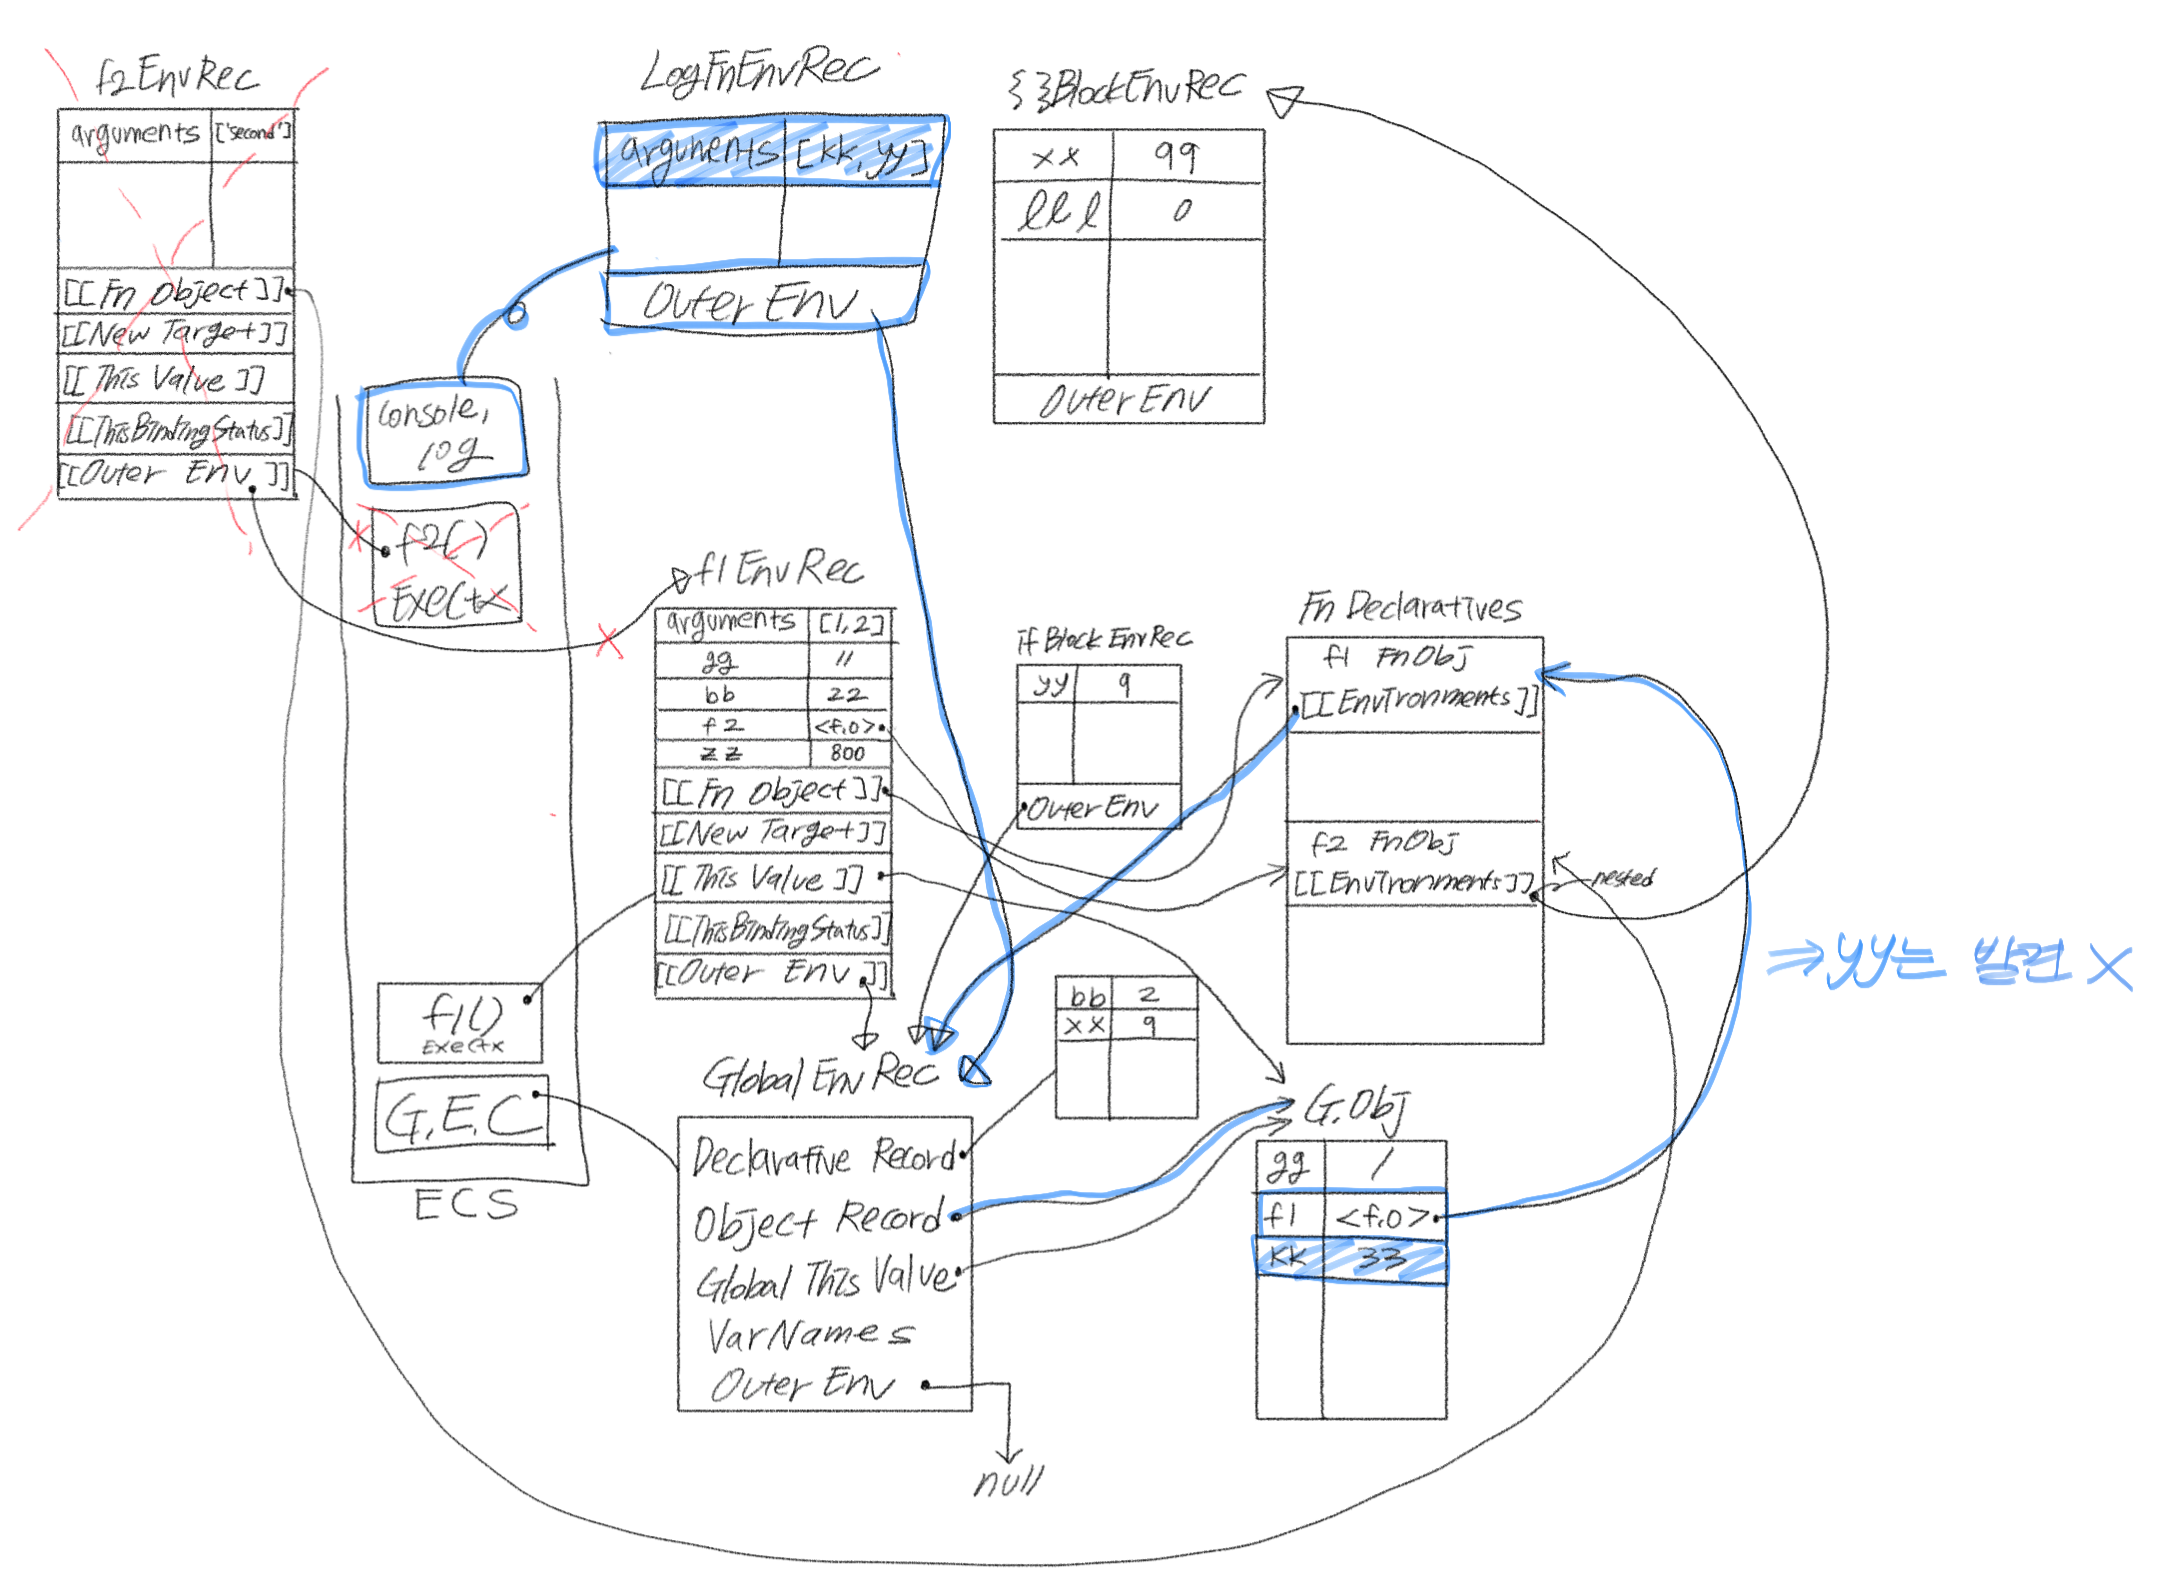 f2EnvRec
arguments ['second']
[[Fn Object]]
[[New Target]]
[[This Value]]
[[ThisBindingStatus]]
[[Outer Env]]
LogFnEnvRec
arguments [kk, yy]
Outer Env
{ }BlockEnvRec
xx 99
lll 0
Outer Env
console.
log
f2()
ExeCtx
f1()
ExeCtx
G.E.C
ECS
f1EnvRec
arguments [1,2]
gg 11
bb 22
f2 <f.o>
zz 800
[[Fn Object]]
[[New Target]]
[[This Value]]
[[ThisBindingStatus]]
[[Outer Env]]
if Block EnvRec
yy 9
Outer Env
Fn Declaratives
f1 FnObj
[[Environments]]
f2 FnObj
[[Environments]]
nested
⇒ yy는 발견 X
bb 2
xx 9
Global Env Rec
Declarative Record
Object Record
Global This Value
VarNames
Outer Env
null
G.Obj
gg 1
f1 <f.o>
kk 33